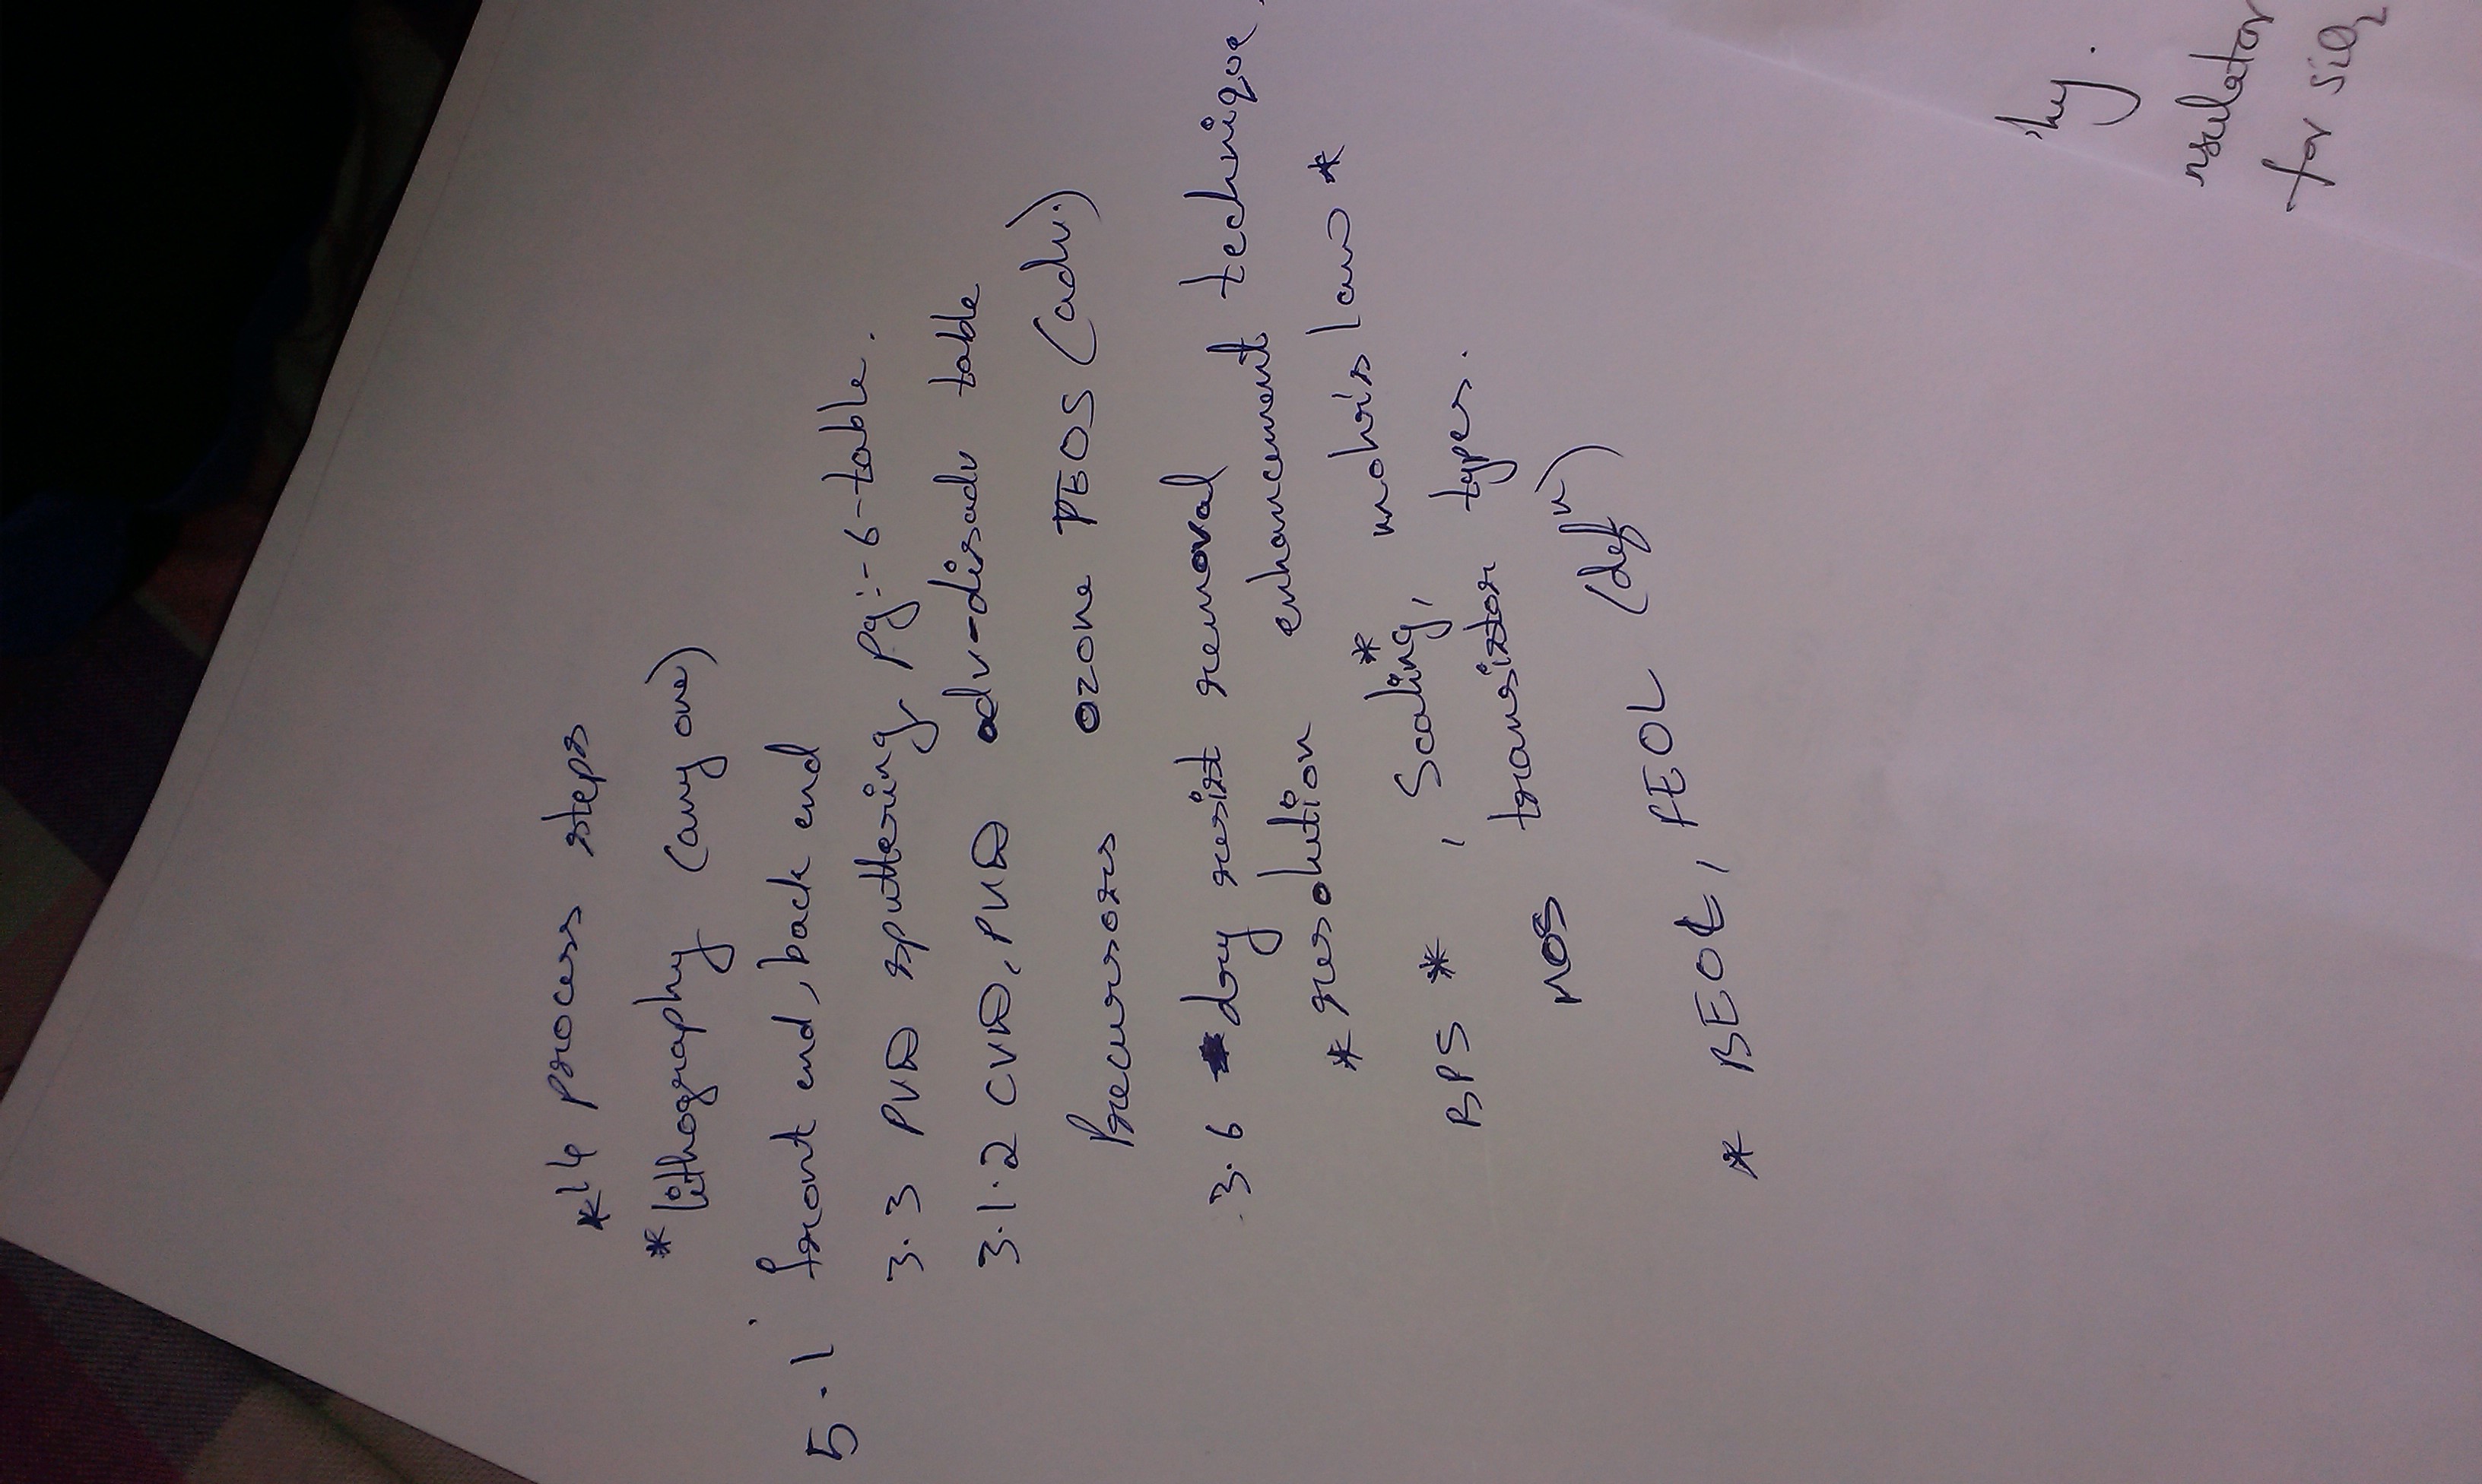 *14 Process steps
* lithography (any one)
5.1 front end, back end
3.3 PVD sputtering Pg:- 6-table.
3.1.2 CVD, PVD adv-disadv table
Precursors ozone TEOS (adv.)
3.6 * dry resist removal
* resolution enhancement technique.
BPS * , Scaling,* mohris law *
MOS transistor types.
* BEOL, FEOL (defn)
hy.
nsulator
for SiO2